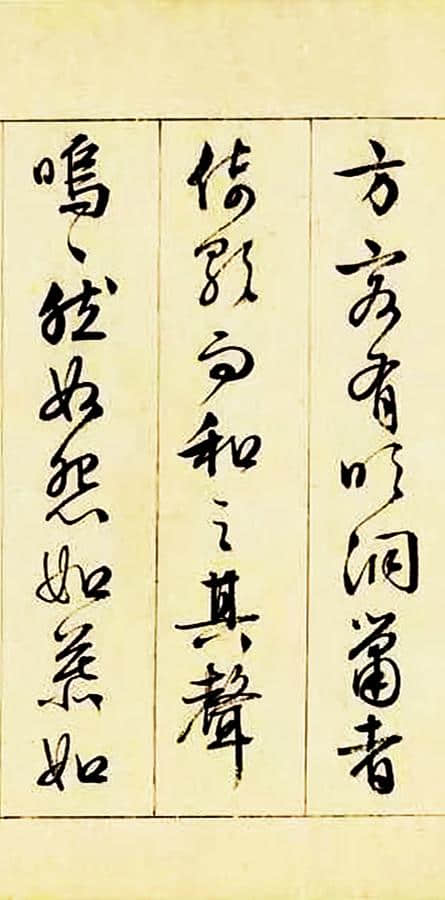 方客有吹洞簫者
倚歌而和之其聲
嗚〻然如怨如慕如